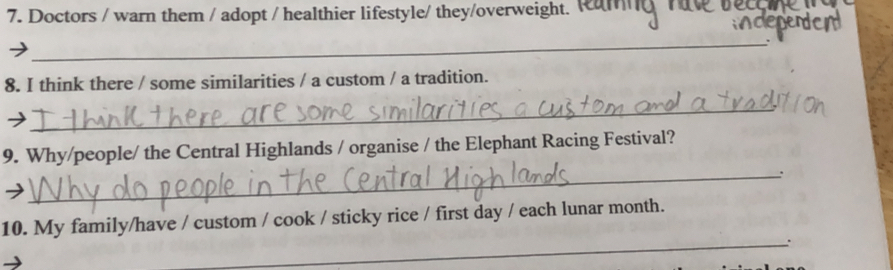 7. Doctors / warn them / adopt / healthier lifestyle/ they/overweight. learning have become
independent
→ .
8. I think there / some similarities / a custom / a tradition.
→ I think there are some similarities a custom and a tradition
9. Why/people/ the Central Highlands / organise / the Elephant Racing Festival?
→ Why do people in the Central Highlands .
10. My family/have / custom / cook / sticky rice / first day / each lunar month.
→ .